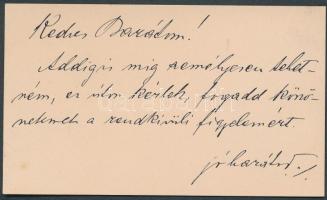 Kedves Barátom!
Addig is míg személyesen tehet-
ném, ez úton kérlek, fogadd köszö-
netemet a rendkívüli figyelemért
jóbarátod